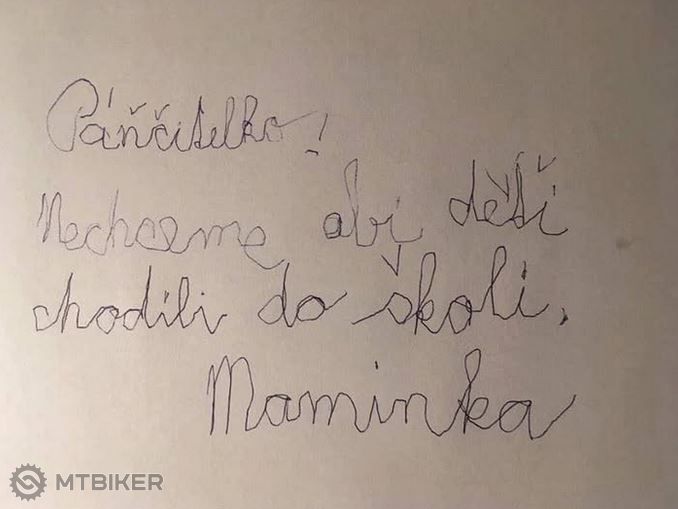 Páňčitelko!
Nechceme abi děťi
chodili do školi.
Maminka
MTBIKER